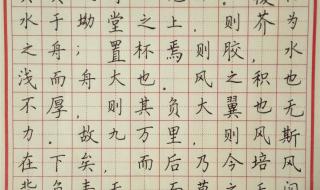 水于坳堂之上，则芥为
之舟；置杯焉则胶，水
浅而舟大也。风之积也
不厚，则其负大翼也无
力。故九万里，则风斯
在下矣，而后乃今培风